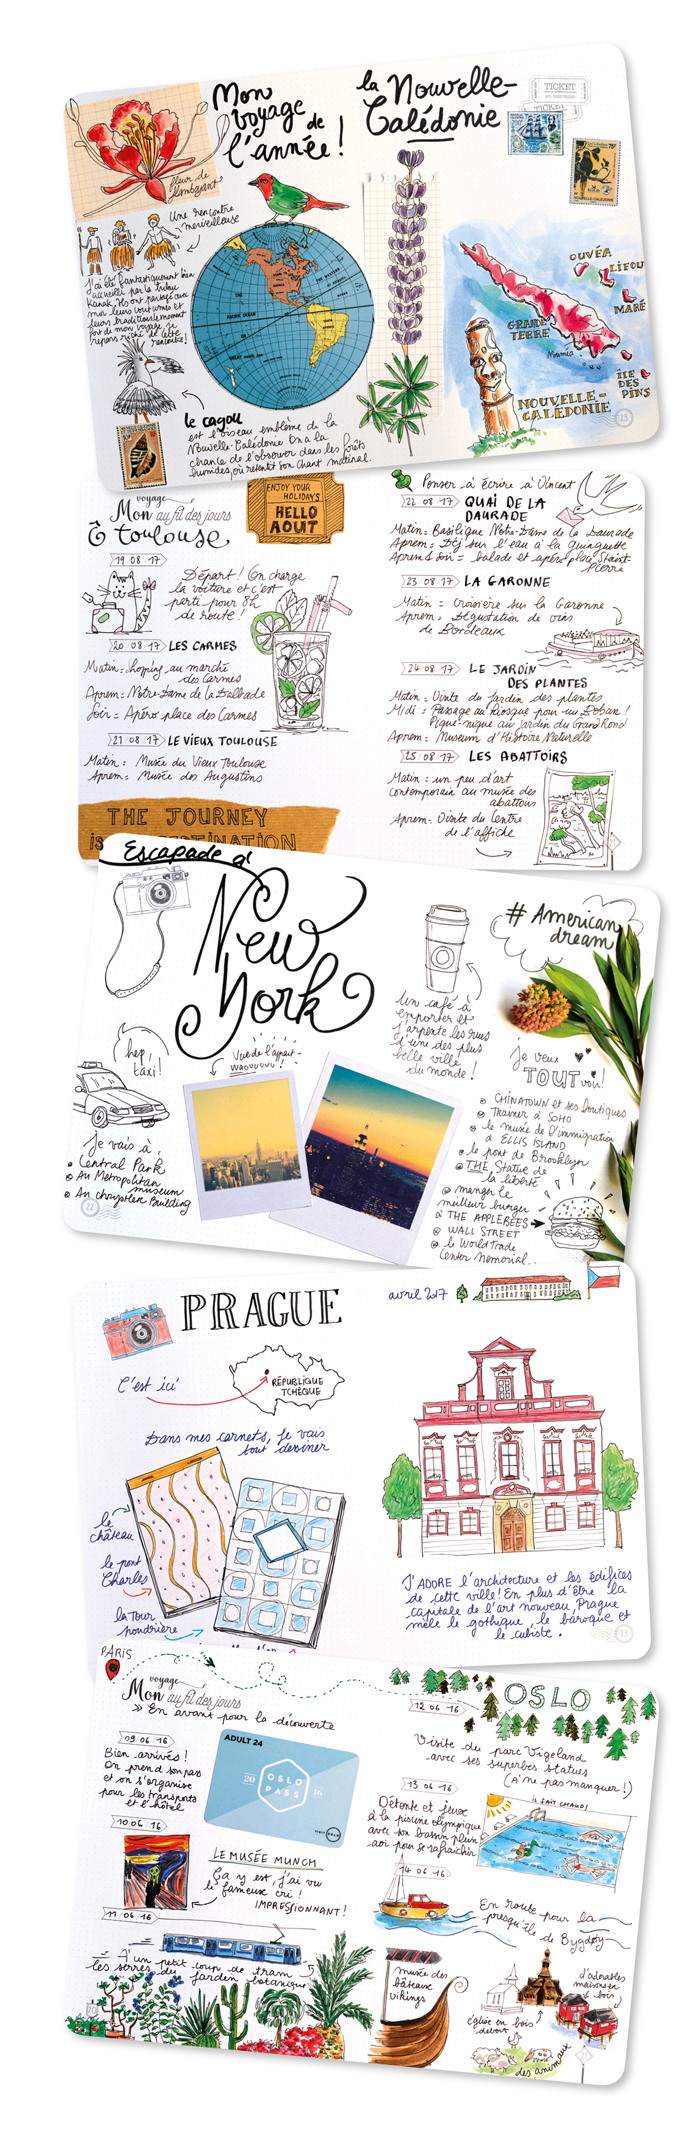 Mon
voyage
de
l'année !
la Nouvelle-
Calédonie
TICKET
TICKET
fleur de
flamboyant
Une rencontre
merveilleuse
J'ai été fantastiquement bien
accueilli par la tribu
Kanak. Ils ont partagé avec
moi leurs coutumes et
leurs traditions
fort de mon voyage. Je
repars riche de cette
rencontre !
PACIFIC OCEAN
GREAT
OUVÉA
LIFOU
MARÉ
GRANDE
TERRE
Nouméa
ÎLE
DES
PINS
NOUVELLE-
CALÉDONIE
13
le cagou
est l'oiseau emblème de la
Nouvelle-Calédonie. On a la
chance de l'observer dans les forêts
humides, où retentit son chant matinal.
voyage
Mon au fil des jours
Ô toulouse
ENJOY YOUR
HOLIDAYS
HELLO
AOUT
19 08 17
Départ ! On charge
la voiture et c'est
parti pour 8h
de route !
20 08 17 LES CARMES
Matin = shopping au marché
des Carmes
Aprem = Notre-Dame de la Dalbade
Soir = Apéro place des Carmes
21 08 17 LE VIEUX TOULOUSE
Matin = Musée du Vieux Toulouse
Aprem = Musée des Augustins
THE JOURNEY
is DESTINATION
Penser à écrire à Vincent
22 08 17 QUAI DE LA
DAURADE
Matin = Basilique Notre-Dame de la Daurade
Aprem = Dej sur l'eau à la Guinguette
Aprem & Soir = balade et apéro place Saint-
Pierre
23 08 17 LA GARONNE
Matin = croisière sur la Garonne
Aprem = Dégustation de vins
de Bordeaux
24 08 17 LE JARDIN
DES PLANTES
Matin = Visite du Jardin des plantes
Midi = Passage au Kiosque pour un Boban !
Pique-nique au jardin du Grand Rond
Aprem = Museum d'Histoire Naturelle
25 08 17 LES ABATTOIRS
Matin = un peu d'art
contemporain au musée des
abattoirs
Aprem = Visite du Centre
de l'affiche
Escapade à
New
York
# American
dream
hep,
taxi !
Vue de l'appart-
Un café à
emporter et
j'arpente les rues
d'une des plus
belle ville
du monde !
je vais à :
Central Park
Au Metropolitan
museum
Au chrysler Building
22
je veux
TOUT voir !
CHINATOWN et ses boutiques
Traîner à SOHO
le musée de l'immigration
à ELLIS ISLAND
le pont de Brooklyn
THE Statue de
la liberté
manger le
meilleur burger
à THE APPLEBEES
WALL STREET
le World Trade
Center Memorial
PRAGUE
avril 2017
C'est ici
RÉPUBLIQUE
TCHÈQUE
Dans mes carnets, je vais
tout dessiner
le
château
le pont
Charles
la tour
poudrière
J'ADORE l'architecture et les édifices
de cette ville ! En plus d'être la
capitale de l'art nouveau, Prague
mêle le gothique, le baroque et
le cubiste.
13
PARIS
voyage
Mon au fil des jours
» En avant pour la découverte
09 06 16
Bien arrivés !
On prend son pass
et on s'organise
pour les transports
et l'hôtel
ADULT 24
20 OSLO 16
PASS
VISIT OSLO
10 06 16
LE MUSÉE MUNCH
Ça y est, j'ai vu
le fameux cri !
IMPRESSIONNANT !
11 06 16
A'un petit coup de tram
les serres du Jardin botanique
OSLO
12 06 16
Visite du parc Vigeland
avec ses superbes statues
(à ne pas manquer !)
13 06 16
Détente et jeux
à la piscine olympique
avec son bassin plein
air pour se rafraichir
IL FAIT CHAUD !
14 06 16
En route pour la
presqu'île de Bygdøy
musée des
bâteaux
vikings
église en bois
debout
d'adorables
maisons en
bois
des animaux